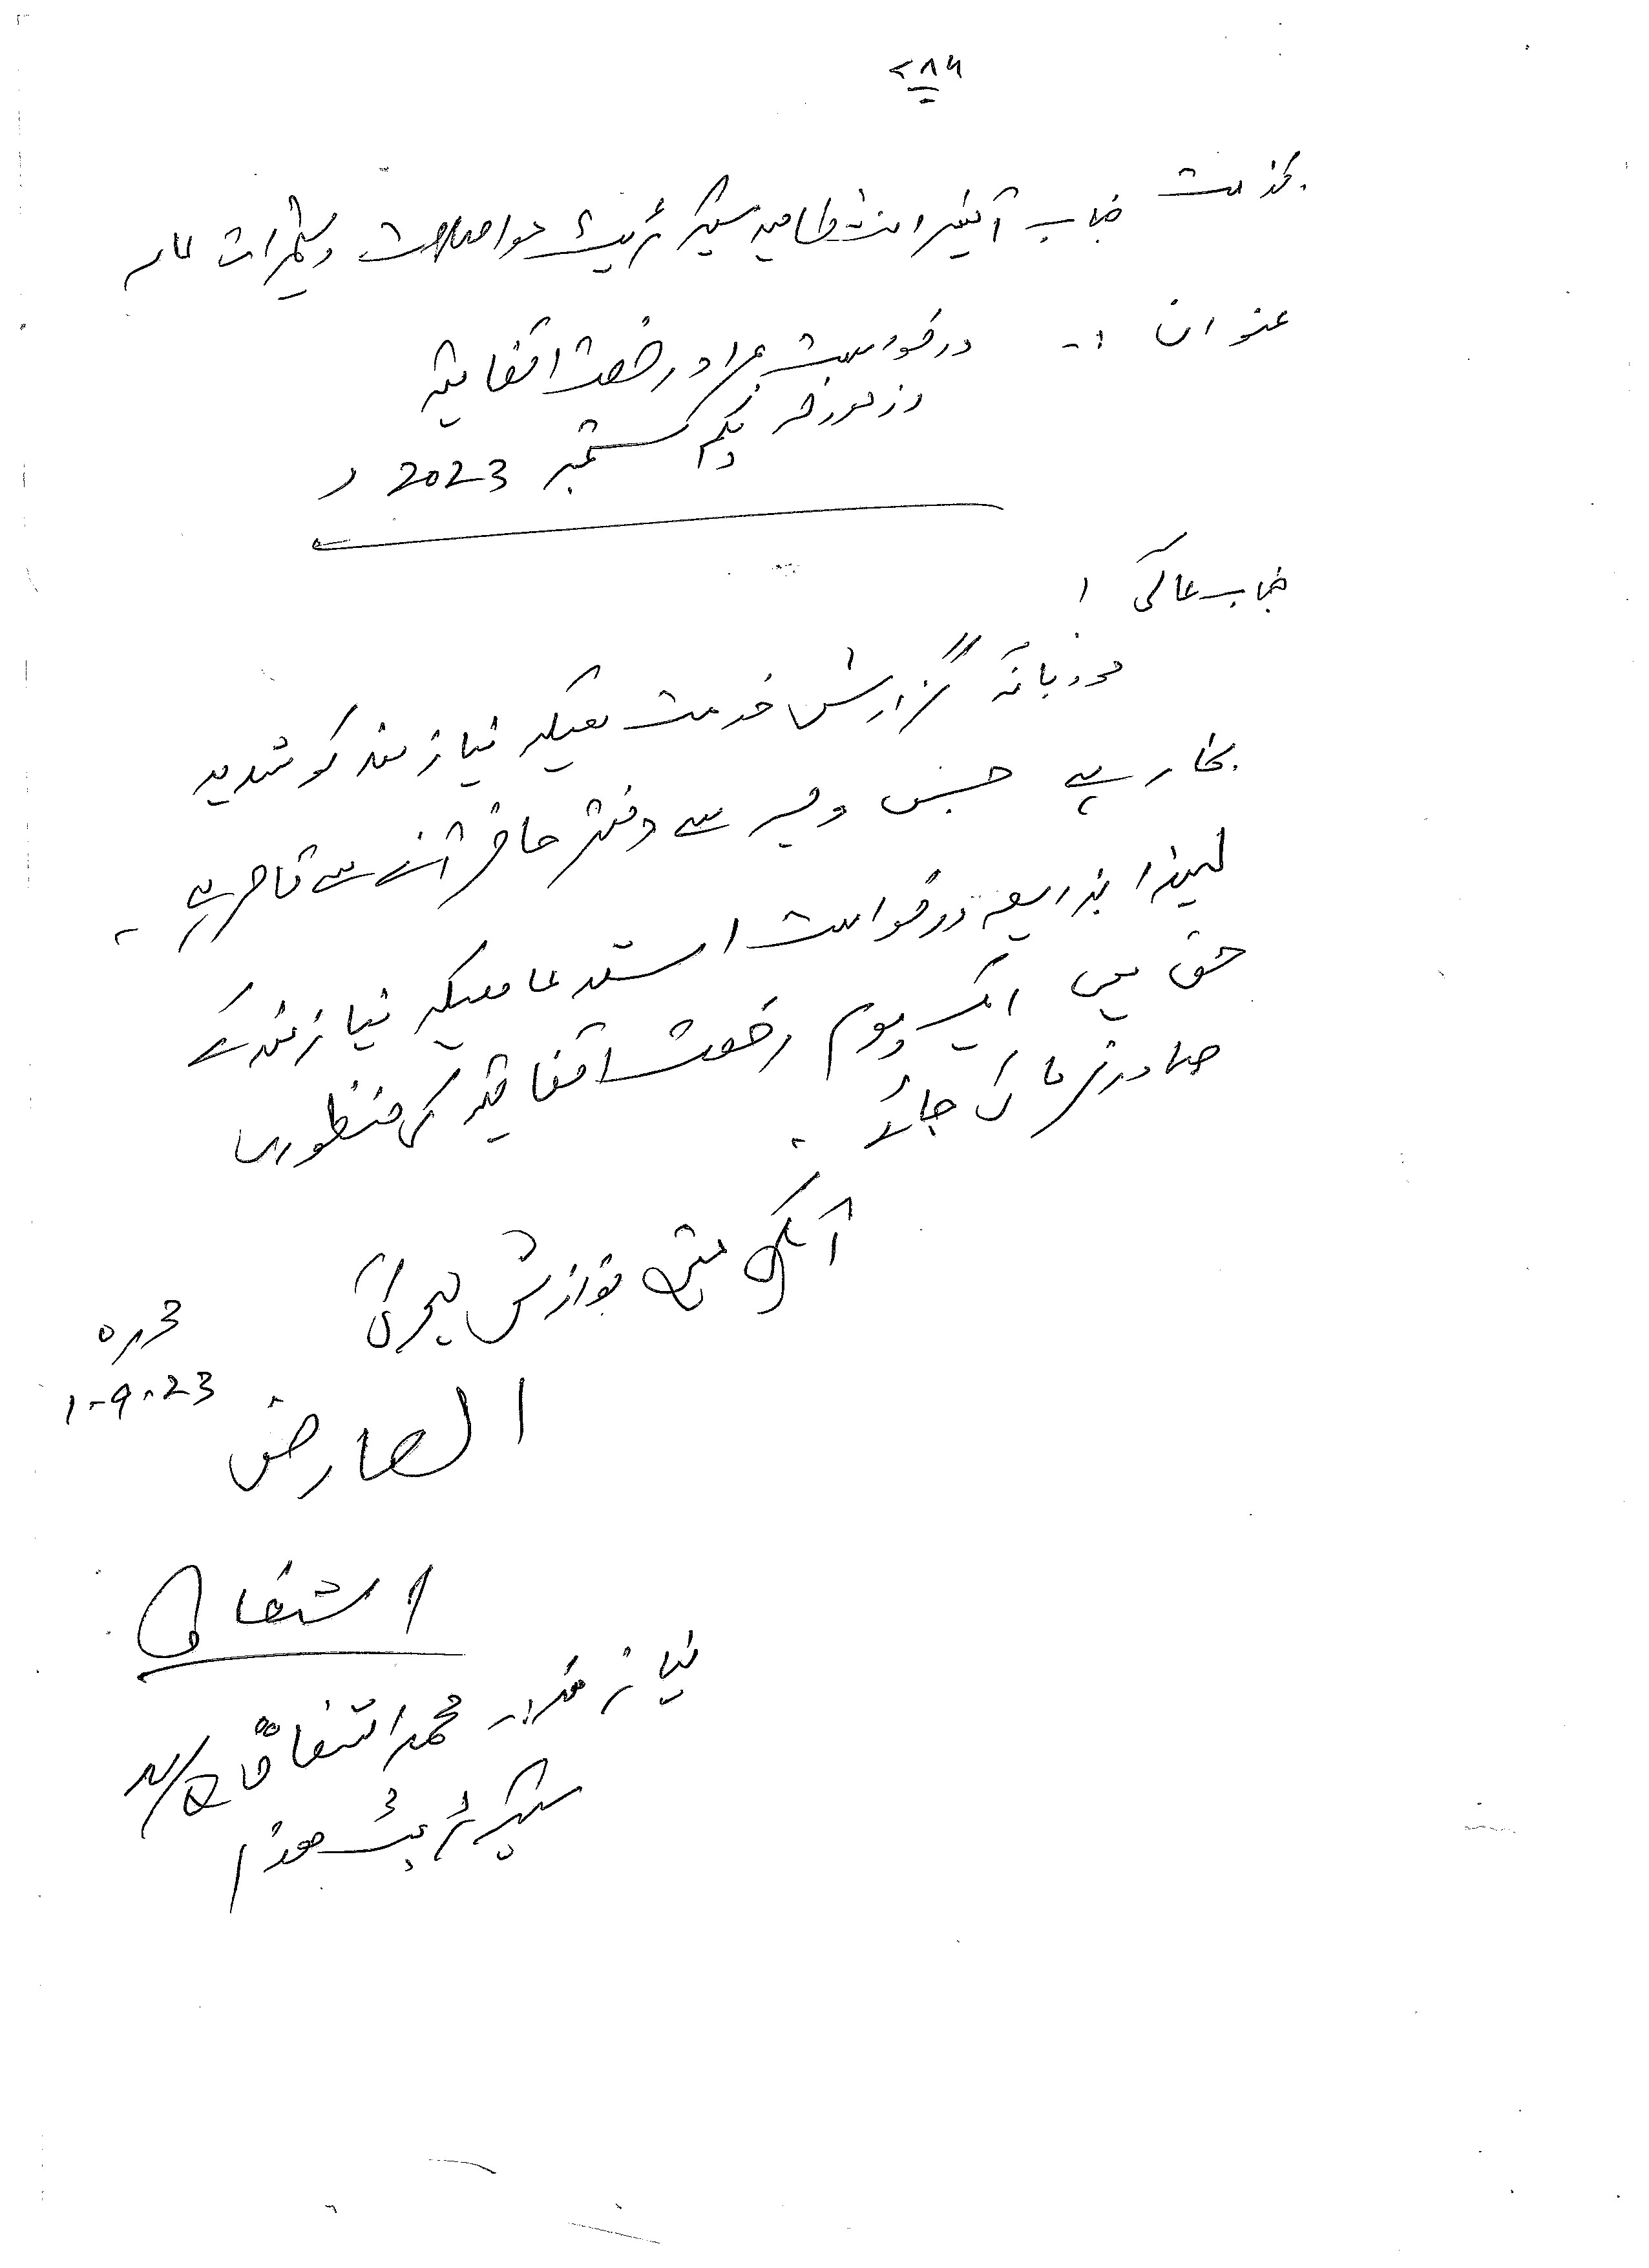 ۷۸۶
بخدمت جناب آفیسر انتظامیہ سیکرٹریٹ مواصلات و تعمیرات عامہ
عنوان :- درخواست بمراد رخصت اتفاقیہ
از مورخہ یکم ستمبر 2023ء
جناب عالی !
مودبانہ گزارش خدمت ہیکہ نیازمند کو شدید
بخار ہے جس وجہ سے دفتر حاضر آنے سے قاصر ہے ۔
لہذا بذریعہ درخواست استدعا ہیکہ نیازمند کے
حق میں ایک یوم رخصت اتفاقیہ کی منظوری
صادر فرمائی جائے ۔
آپکی عین نوازش ہوگی
تحریرہ
1-9-23
العارض
نیازمند :- محمد اشفاق
سیکرٹریٹ ھذا